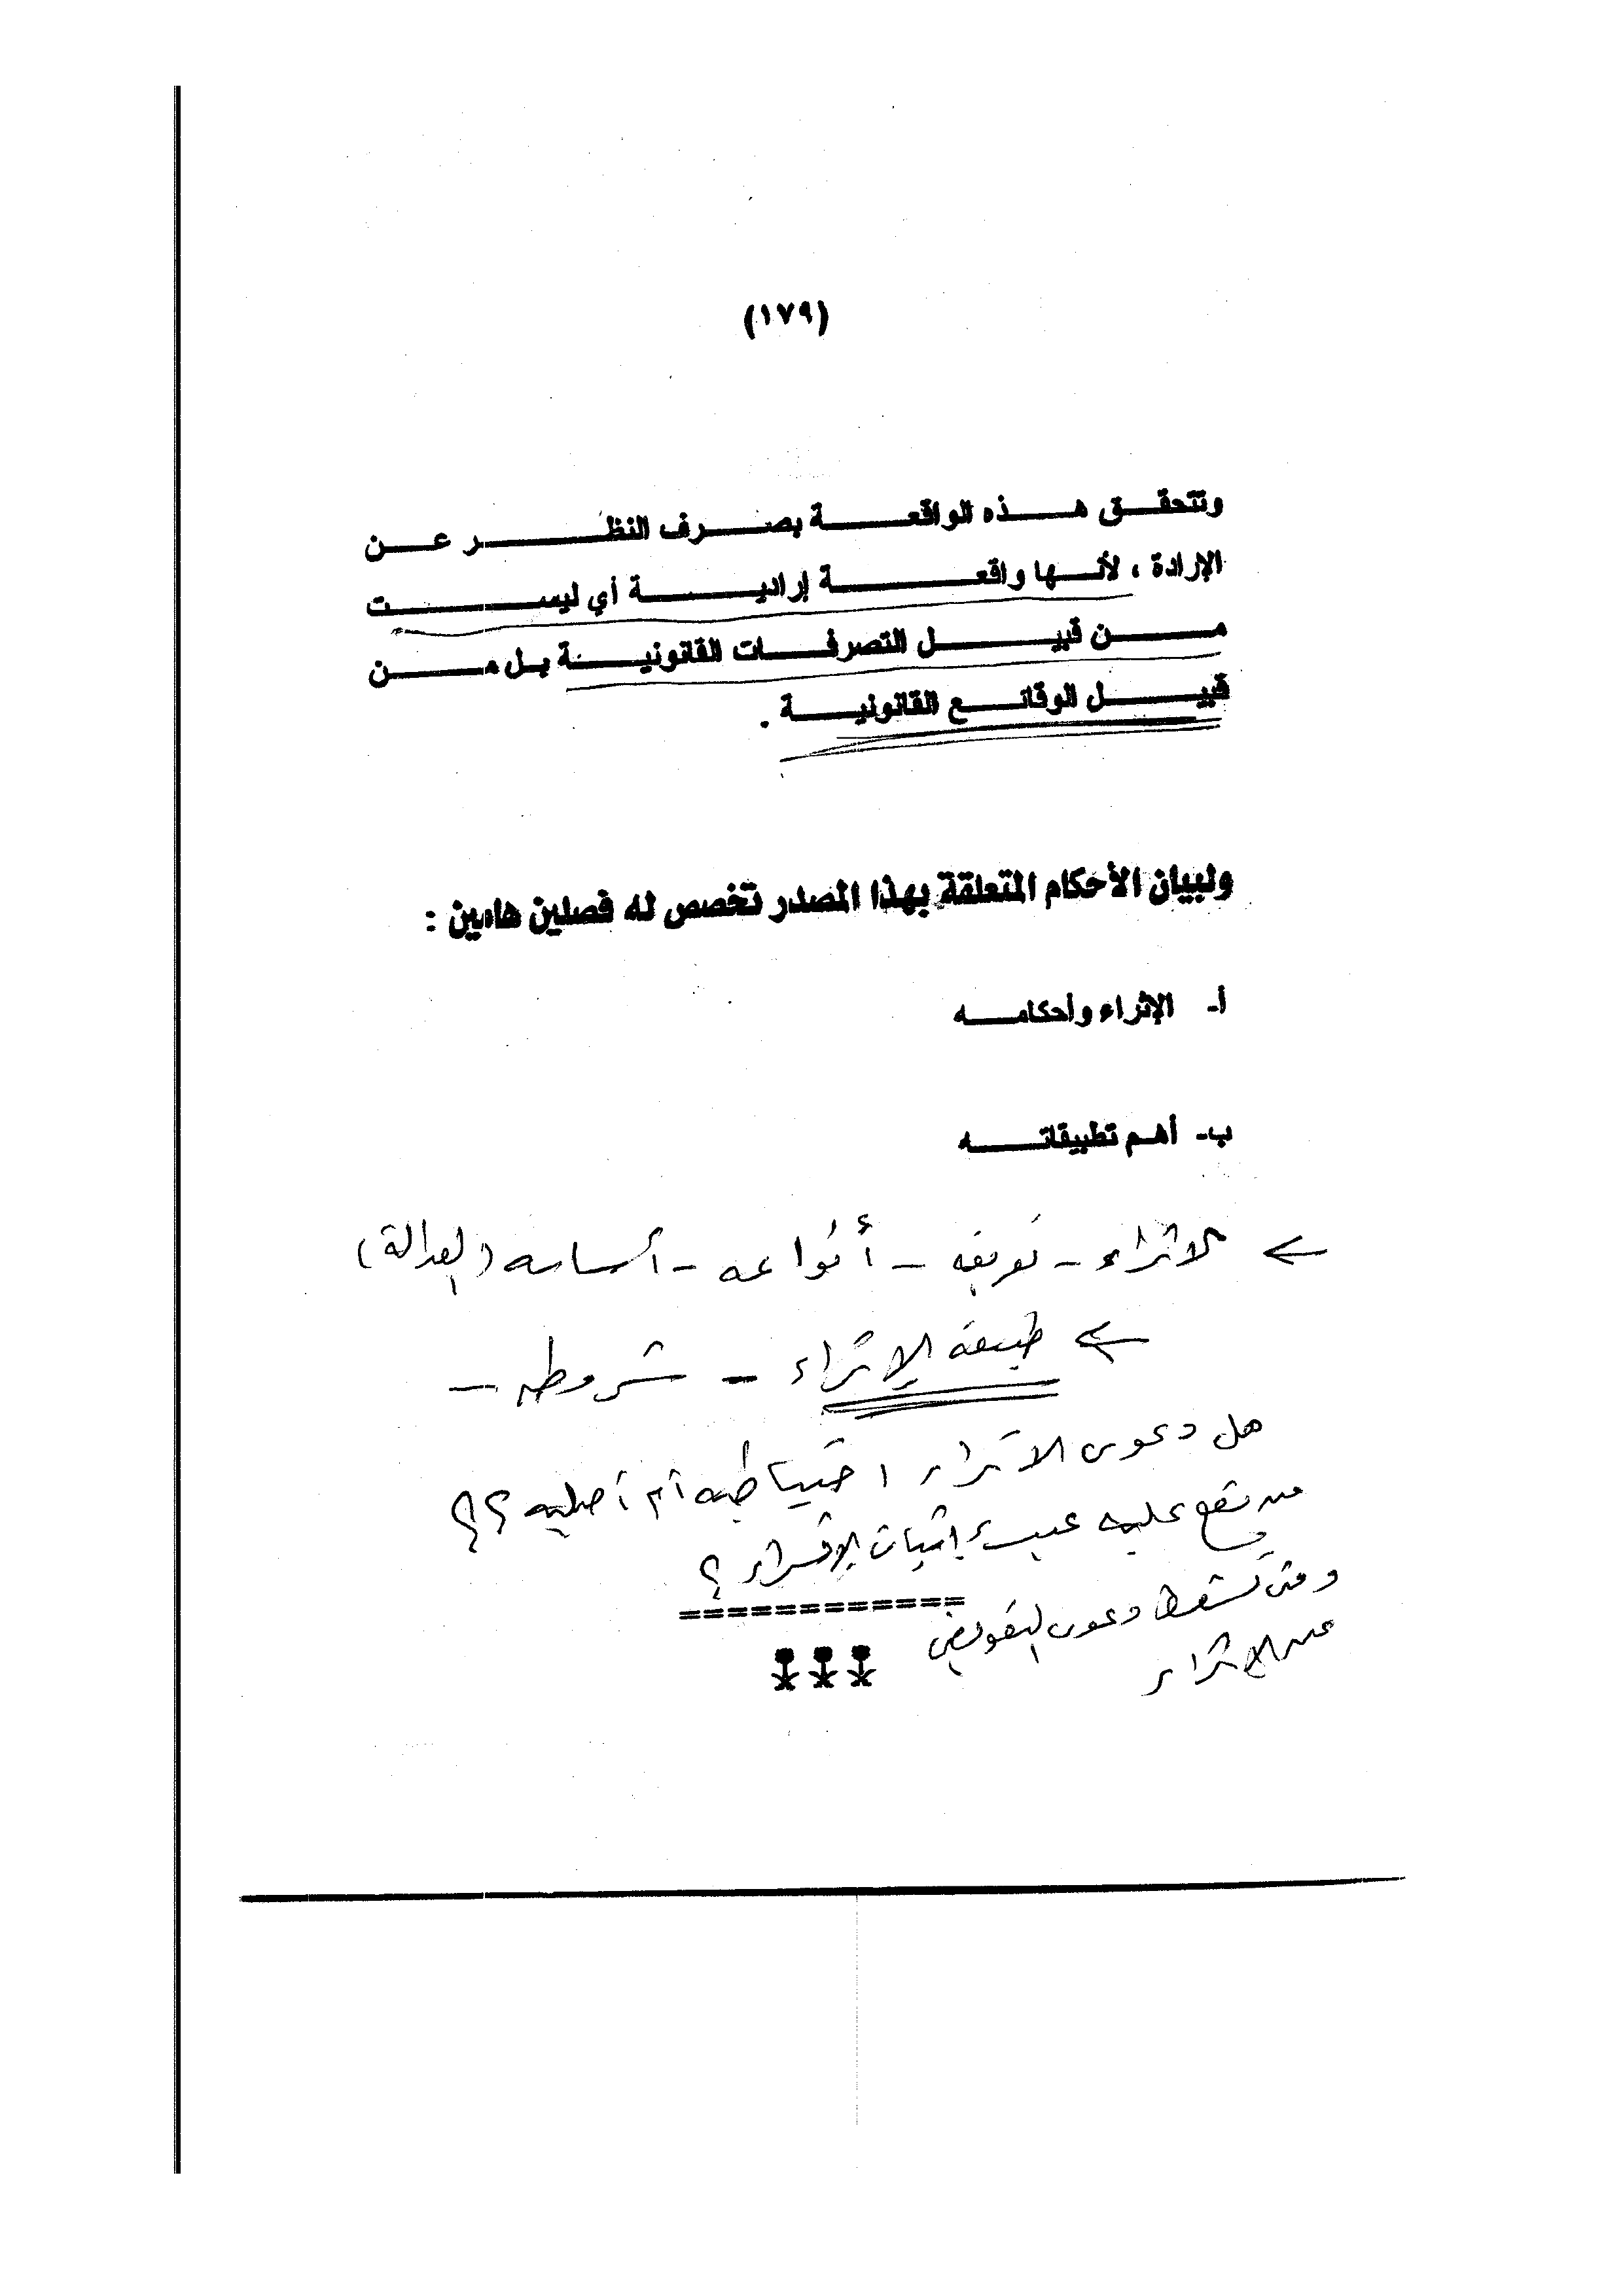 (١٧٩)
وتتحقق هذه الواقعة بصرف النظر عن
الإرادة ، لأنها واقعة إرادية أي ليست
من قبيل التصرفات القانونية بل من
قبيل الوقائع القانونية .
ولبيان الأحكام المتعلقة بهذا المصدر تخصص له فصلين هامين :
أ- الإثراء وأحكامه
ب- أهم تطبيقاته
← الاثراء - تعريفه - أنواعه - أساسه (العدالة)
← طبيعة الإثراء - شروطه -
هل دعوى الاثراء احتياطيه أم أصليه ؟؟
من تقع عليه عبء إثبات الإثراء ؟
ومتى تسقط دعوى التعويض
عن الإثراء
============